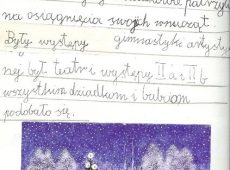 na osiągnięcia swoich wnucząt
Były występy gimnastyki artysty
nej był teatr i występy II a i II b
wszystkim dziadkom i babciom
podobało się.